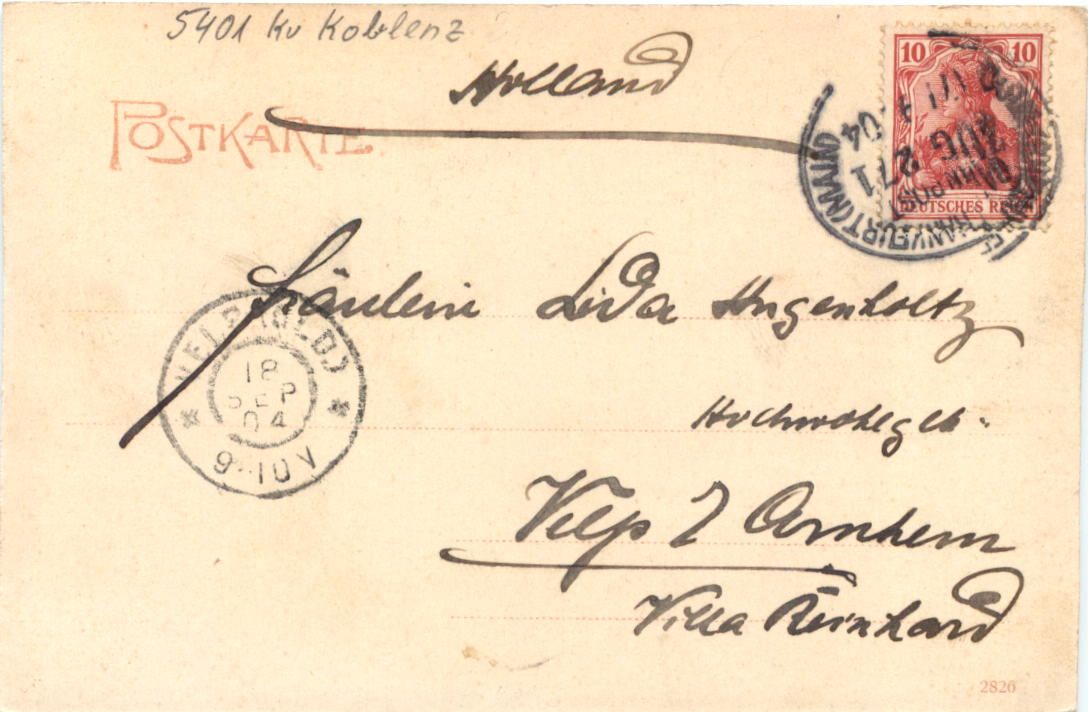 5401 Kv Koblenz
Holland
POSTKARTE
10 10
DEUTSCHES REICH
FRANKFURT (MAIN)
BAHNPOST
271
AUG
04
Fräulein Lida Hugenholtz
VELP (GLD)
18
SEP
04
9-10V
Hochwohlgeb.
Velp Arnhem
Villa Reinhard
2826